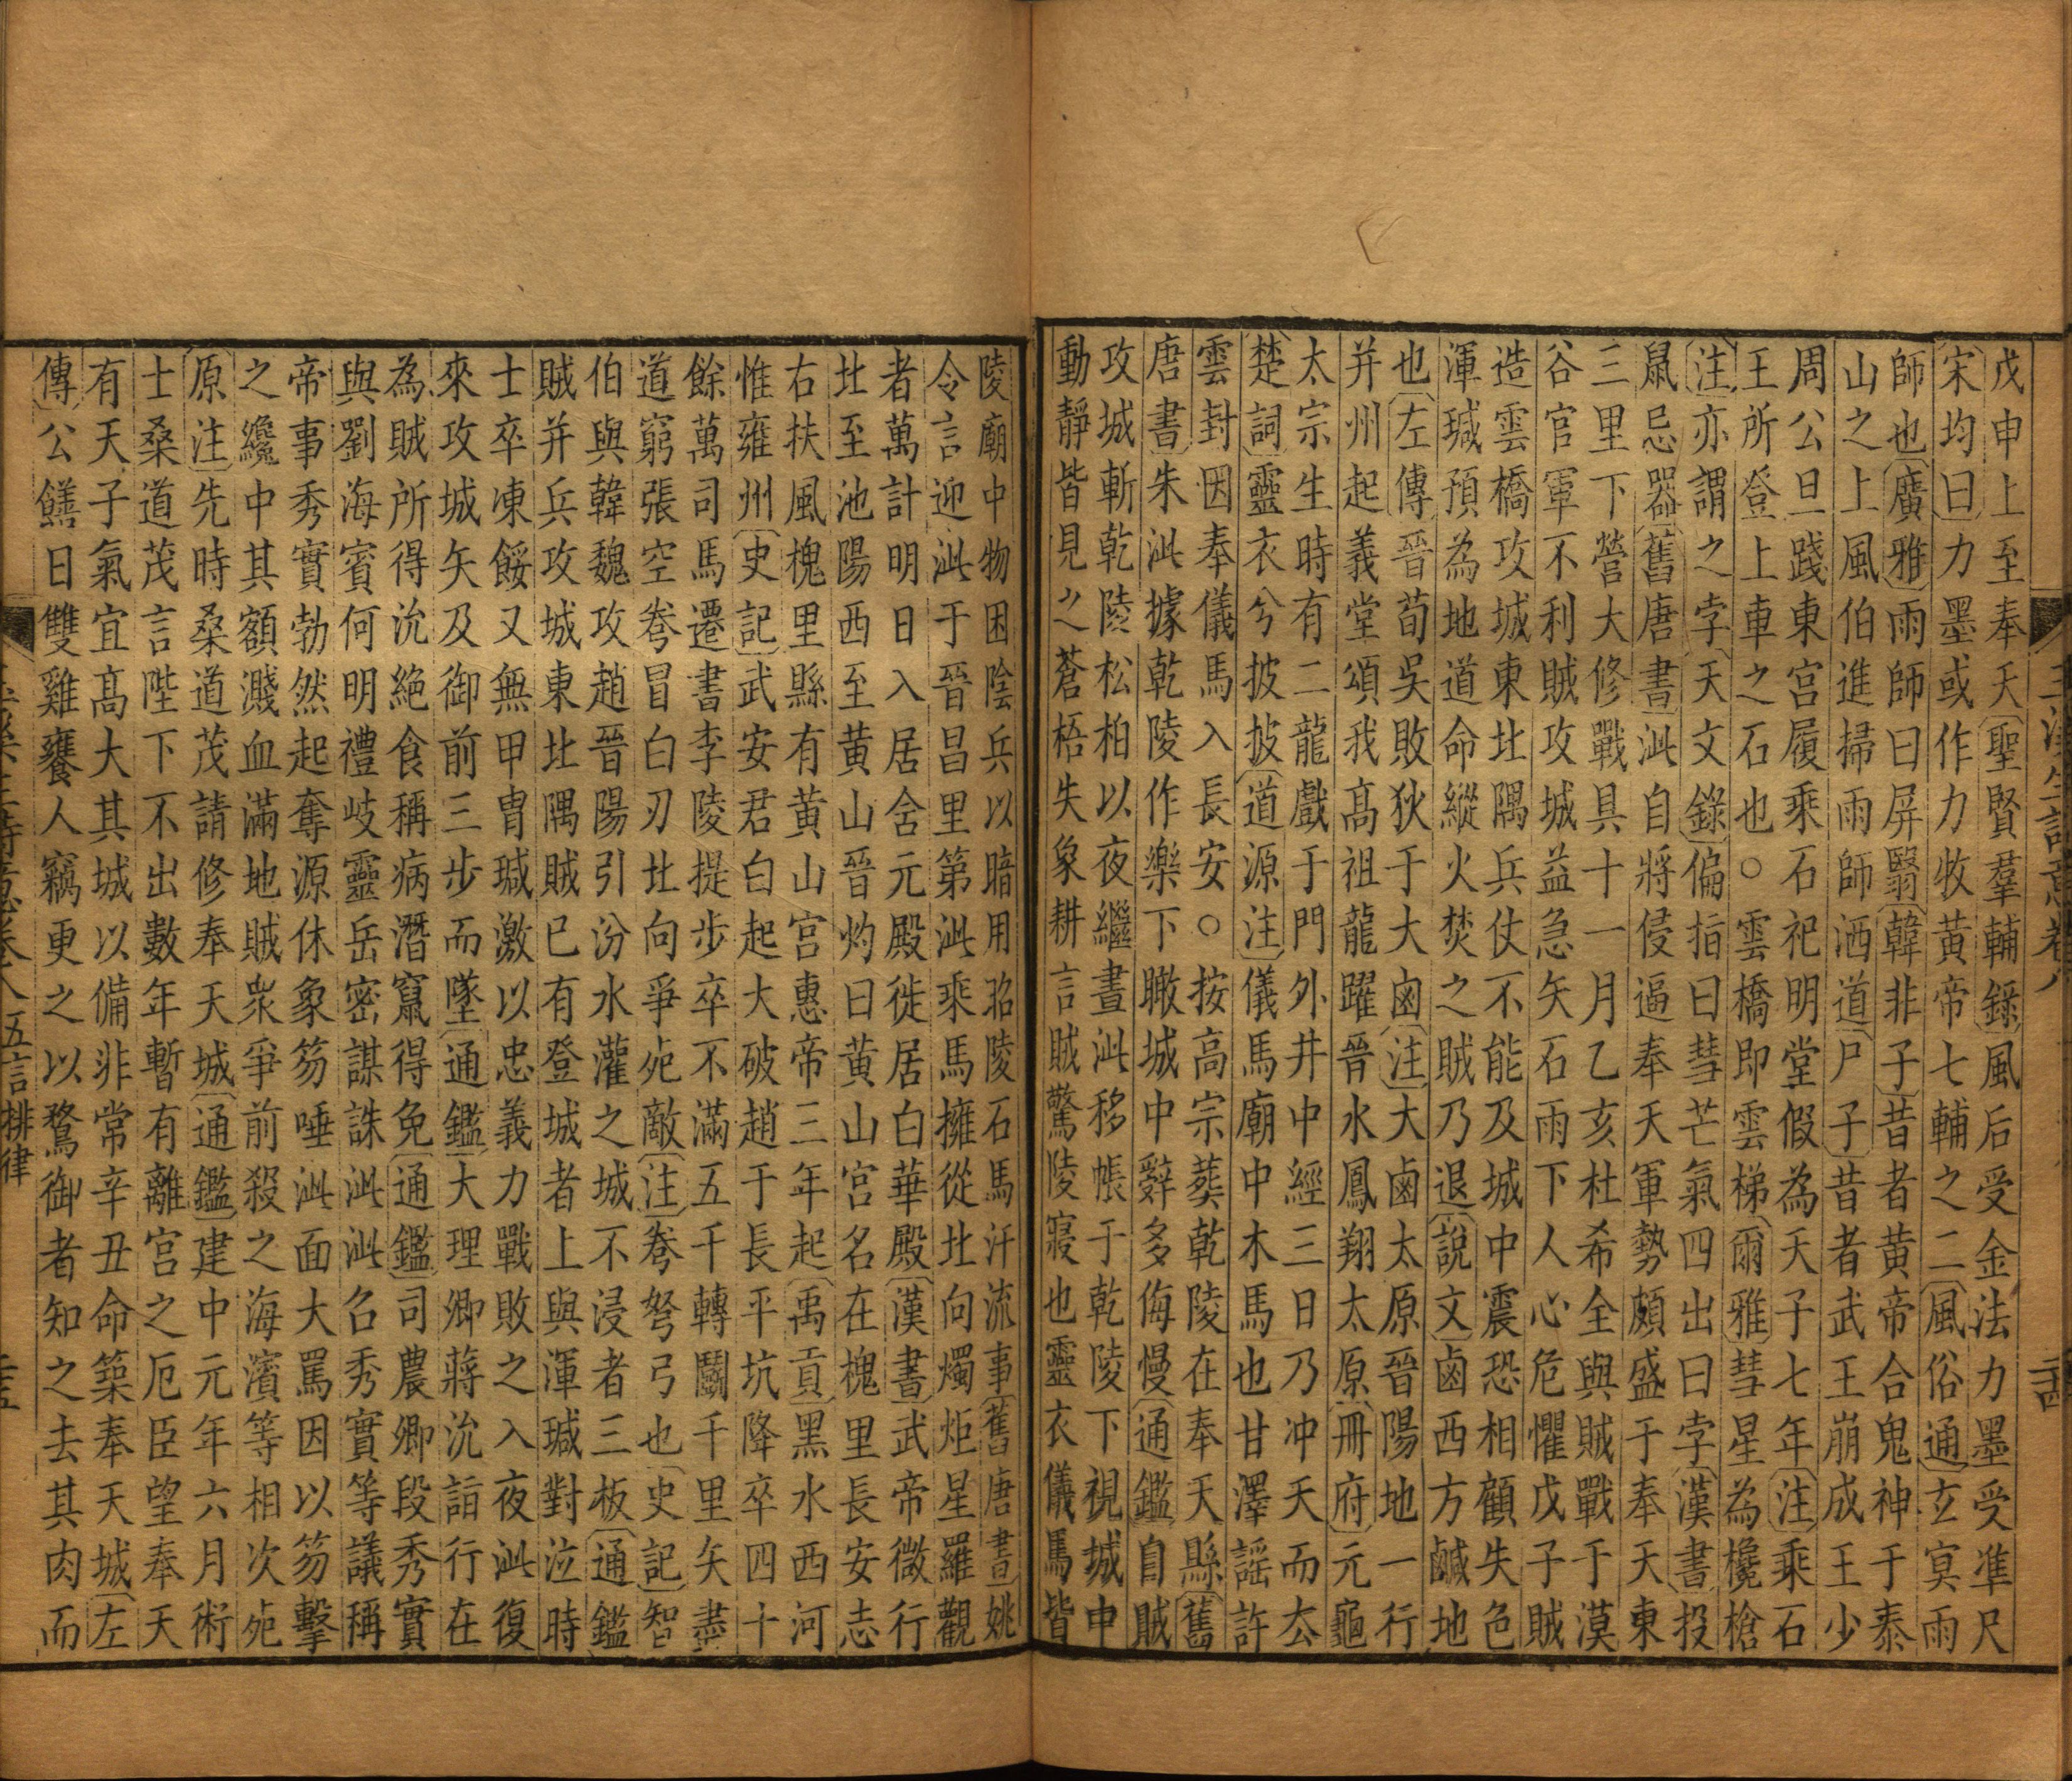 戊申上至奉天聖賢羣輔錄風后受金法力墨受凖尺
宋均曰力墨或作力收黃帝七輔之二風俗通玄冥雨
師也廣雅雨師曰屏翳韓非子昔者黄帝合鬼神于泰
山之上風伯進掃雨師洒道尸子昔者武王崩成王少
周公旦踐東宮履乘石祀明堂假為天子七年注乘石
王所登上車之石也○雲橋即雲梯爾雅彗星為欃槍
注亦謂之孛天文錄偏指曰彗芒氣四出曰孛漢書投
鼠忌器舊唐書泚自將侵逼奉天軍勢頗盛于奉天東
三里下營大修戰具十一月乙亥杜希全與賊戰于漠
谷官軍不利賊攻城益急矢石雨下人心危懼戊子賊
造雲橋攻城東北隅兵仗不能及城中震恐相顧失色
渾瑊預為地道命縱火焚之賊乃退說文鹵西方鹹地
也左傳晉荀吳敗狄于大鹵注大鹵太原晉陽地一行
并州起義堂頌我高祖龍躍晉水鳳翔太原冊府元龜
太宗生時有二龍戲于門外井中經三日乃冲天而去
楚詞靈衣兮披披道源注儀馬廟中木馬也甘澤謡許
雲封因奉儀馬入長安○按高宗葬乾陵在奉天縣舊
唐書朱泚據乾陵作樂下瞰城中辭多侮慢通鑑自賊
攻城斬乾陵松柏以夜繼晝泚移帳于乾陵下視城中
動靜皆見之蒼梧失象耕言賊驚陵寢也靈衣儀馬皆
陵廟中物困陰兵以暗用昭陵石馬汗流事舊唐書姚
令言迎泚于晉昌里第泚乘馬擁從北向燭炬星羅觀
者萬計明日入居舍元殿徙居白華殿漢書武帝微行
北至池陽西至黄山晉灼曰黄山宮名在槐里長安志
右扶風槐里縣有黄山宮惠帝三年起禹貢黑水西河
惟雍州史記武安君白起大破趙于長平坑降卒四十
餘萬司馬遷書李陵提步卒不滿五千轉鬬千里矢盡
道窮張空弮冒白刃北向爭死敵注弮弩弓也史記智
伯與韓魏攻趙晉陽引汾水灌之城不浸者三板通鑑
賊并兵攻城東北隅賊已有登城者上與渾瑊對泣時
士卒凍餒又無甲冑瑊激以忠義力戰敗之入夜泚復
來攻城矢及御前三步而墜通鑑大理卿蔣沇詣行在
為賊所得沇絶食稱病潛竄得免通鑑司農卿段秀實
與劉海賓何明禮岐靈岳密謀誅泚泚召秀實等議稱
帝事秀實勃然起奪源休象笏唾泚面大罵因以笏擊
之纔中其額濺血滿地賊衆爭前殺之海濱等相次死
原注先時桑道茂請修奉天城通鑑建中元年六月術
士桑道茂言陛下不出數年暫有離宮之厄臣望奉天
有天子氣宜高大其城以備非常辛丑命築奉天城左
傳公饍日雙雞饔人竊更之以鶩御者知之去其肉而
五言排律